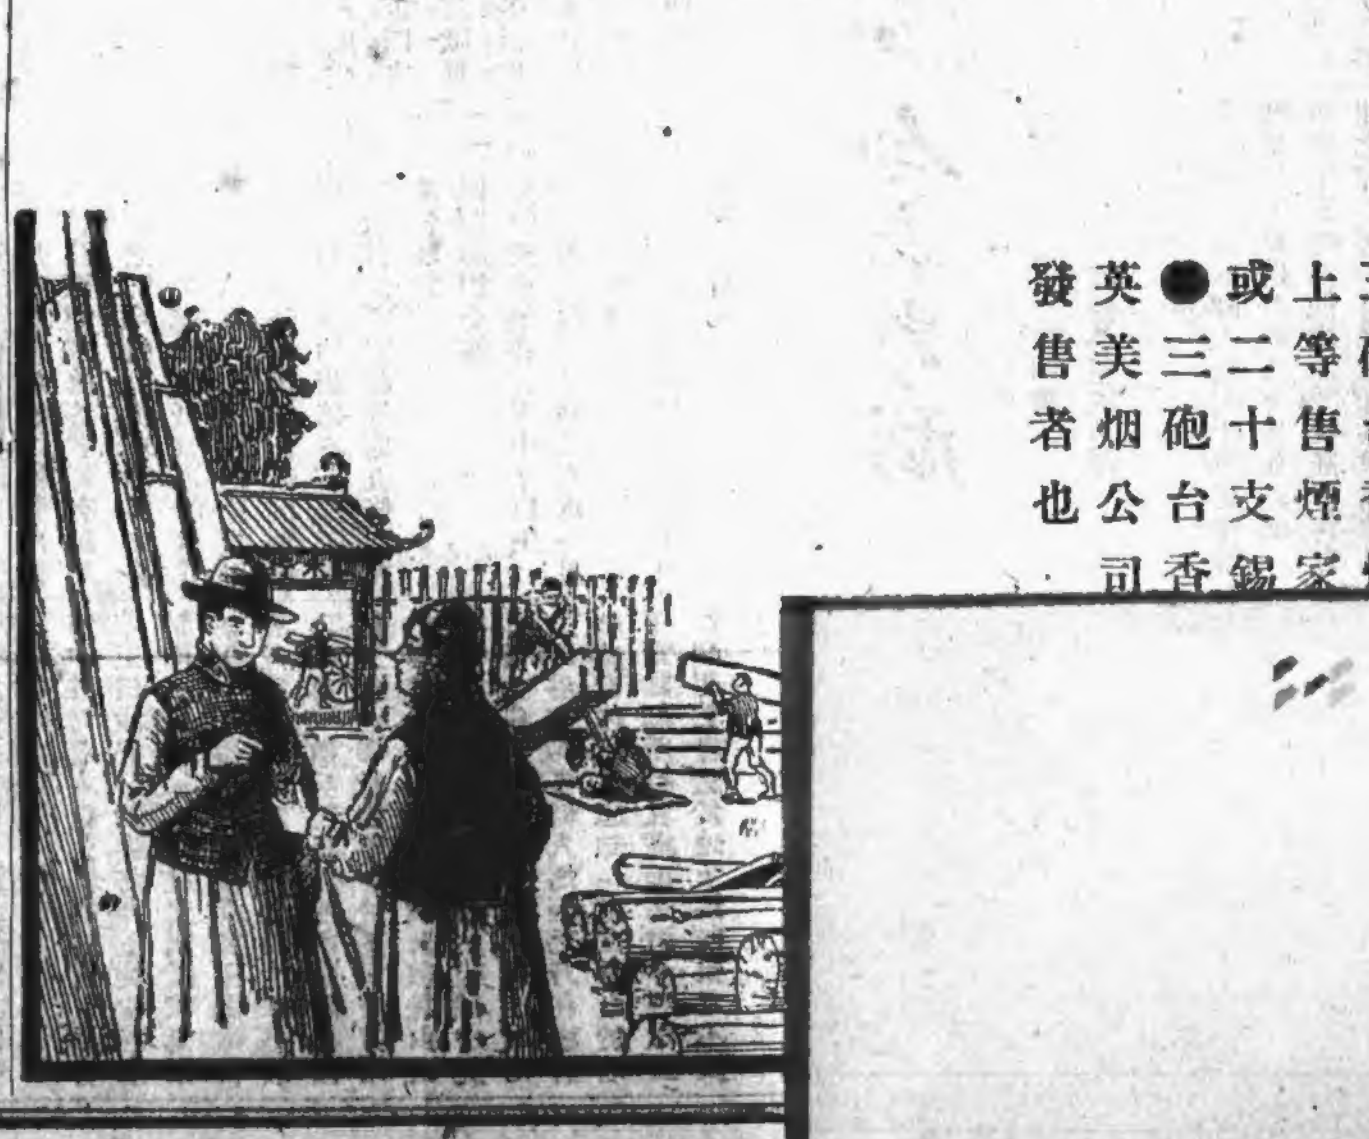 上等售煙家
或二十支錫
●三砲台香
英美烟公司
發售者也